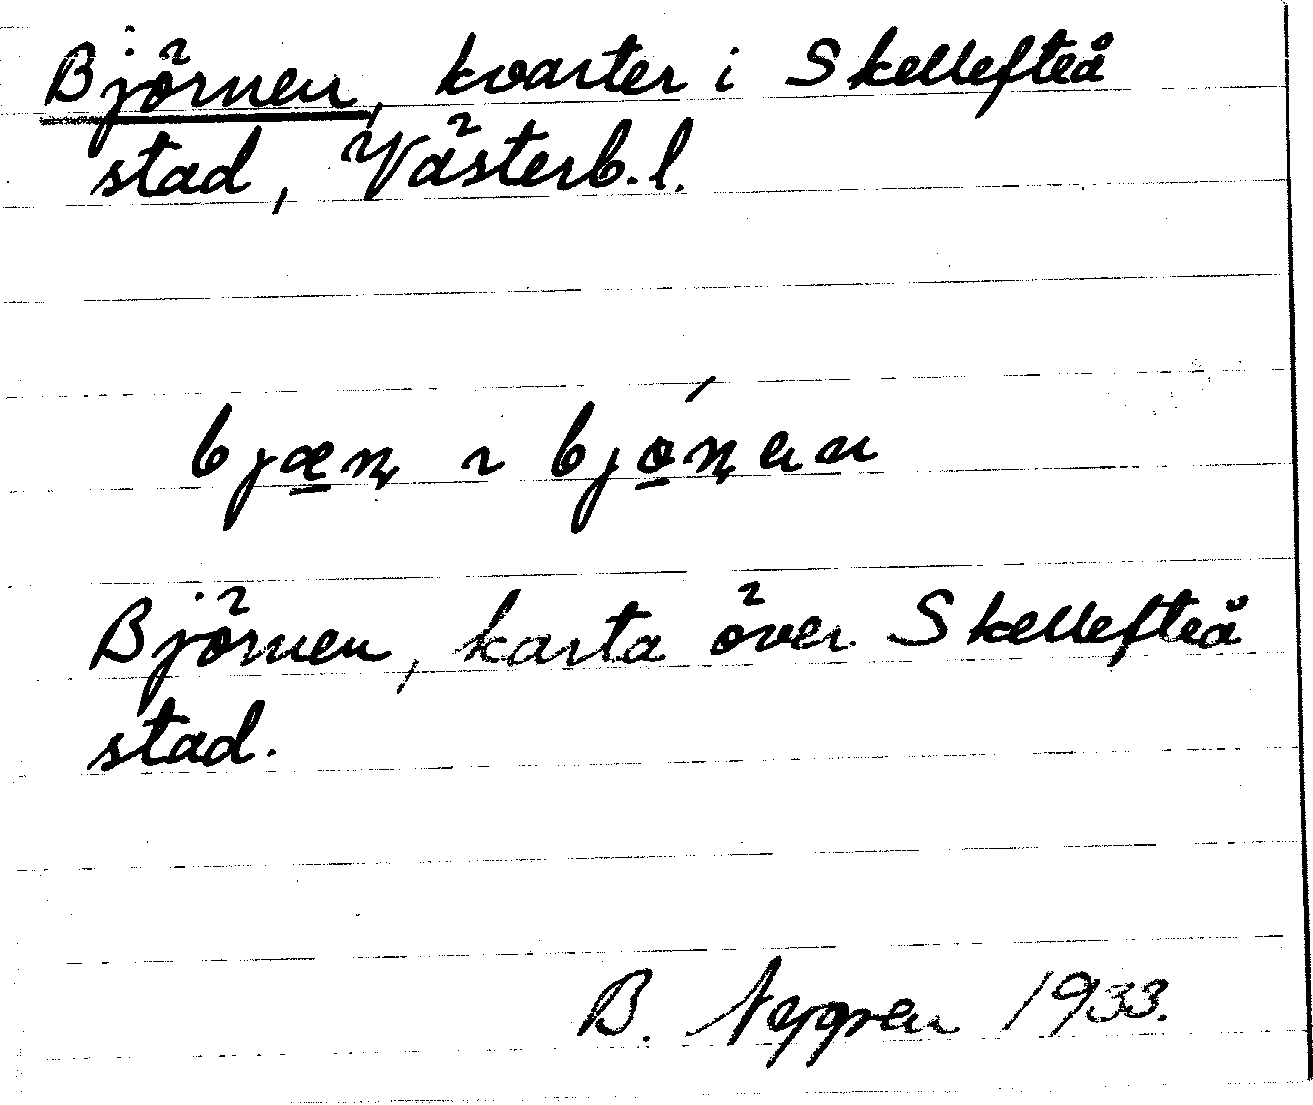 Björnen, kvarter i Skellefteå
stad, Västerb. l.
bjæ̱ɳ ~ bjó̱ɳen
Björnen, karta över Skellefteå
stad.
B. Nygren 1933.